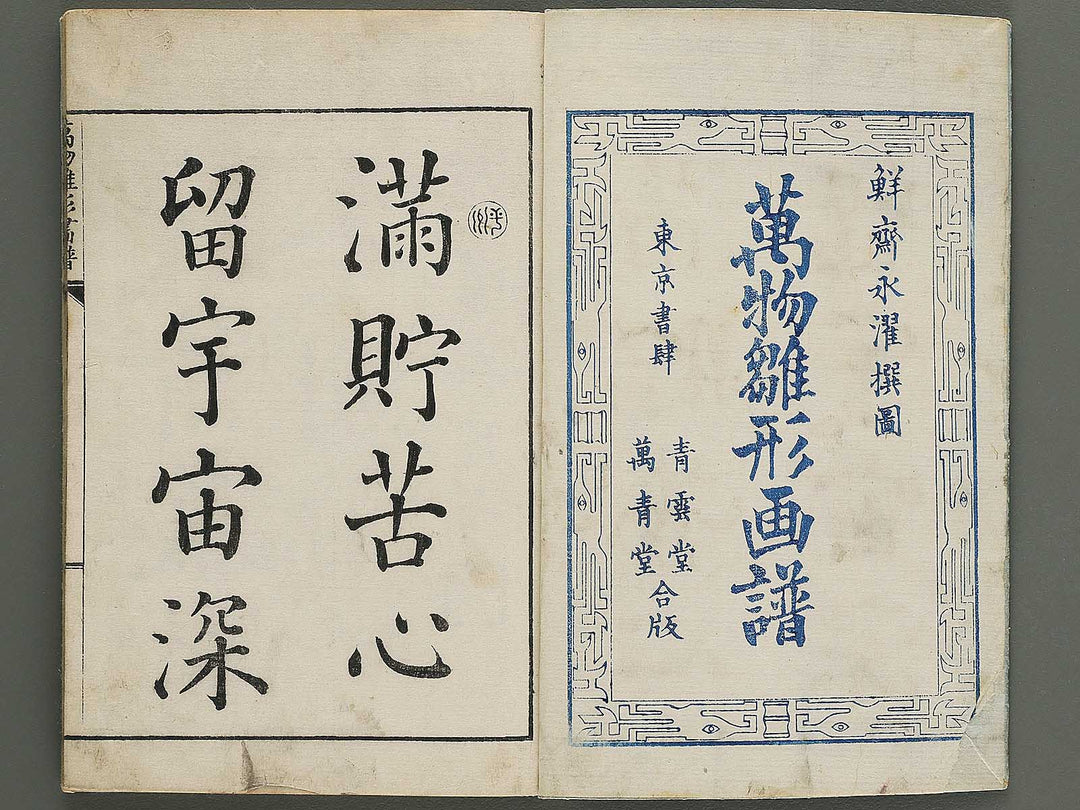 鮮齋永濯撰圖
萬物雛形画譜
東京書肆
青雲堂
萬青堂
合版
滿貯苦心
留宇宙深
萬物雛形画譜